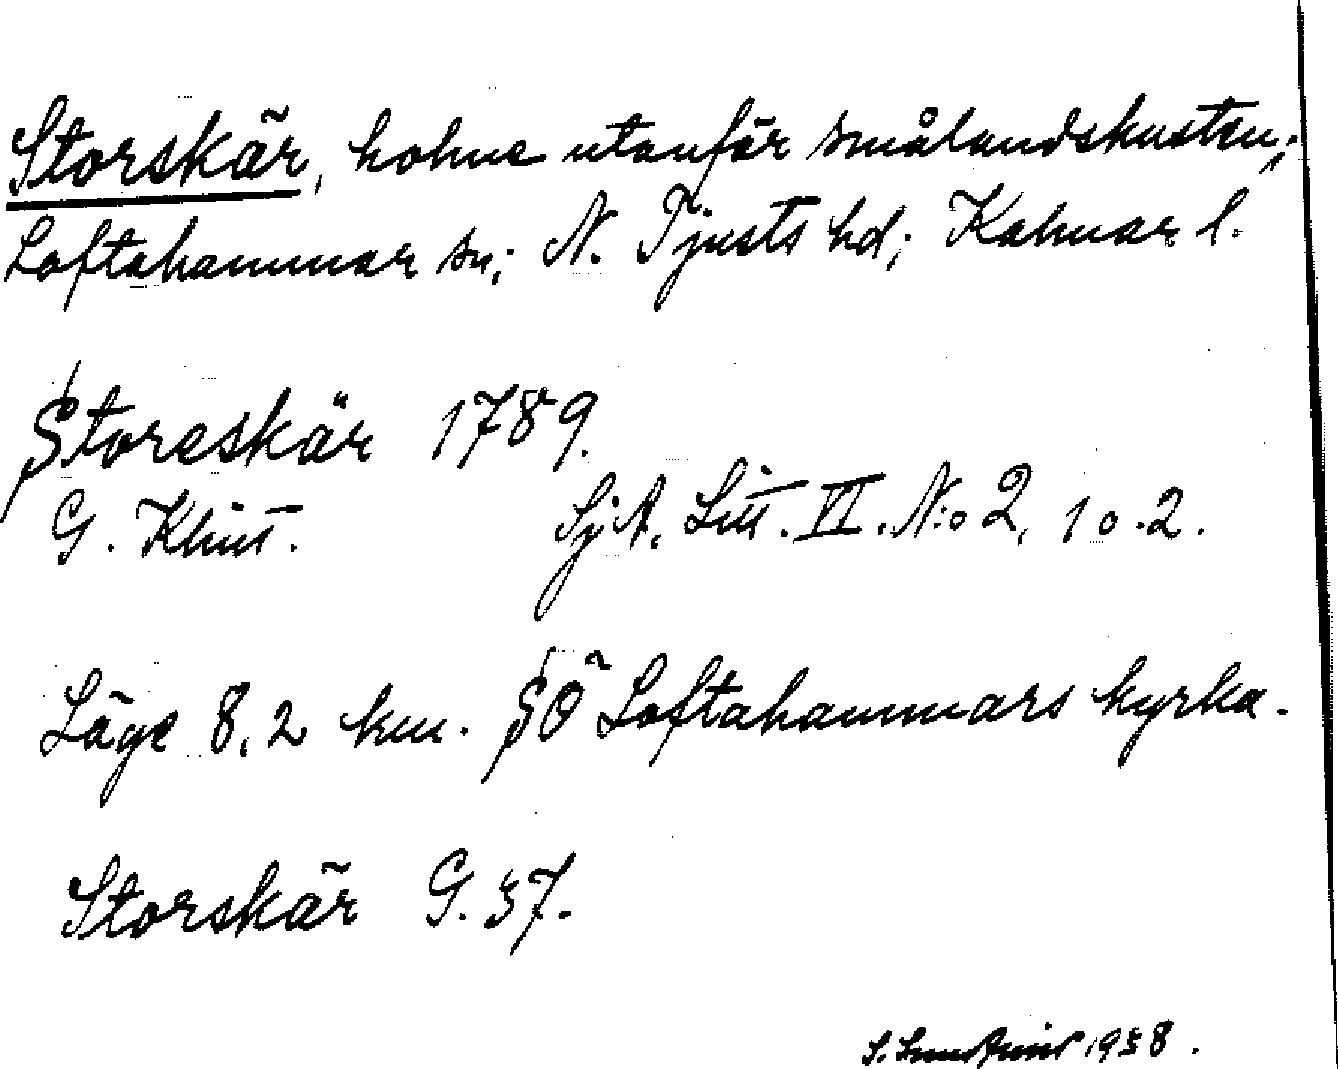 Storskär, holme utanför smålandskusten;
Loftahammar sn; N. Tjusts hd; Kalmar l.
Storeskär 1789.
G. Klint. SjA. Litt. VI. N:o 2, 1 o. 2.
Läge 8,2 km. SÖ Loftahammars kyrka.
Storskär G. 37.
S. 1958.